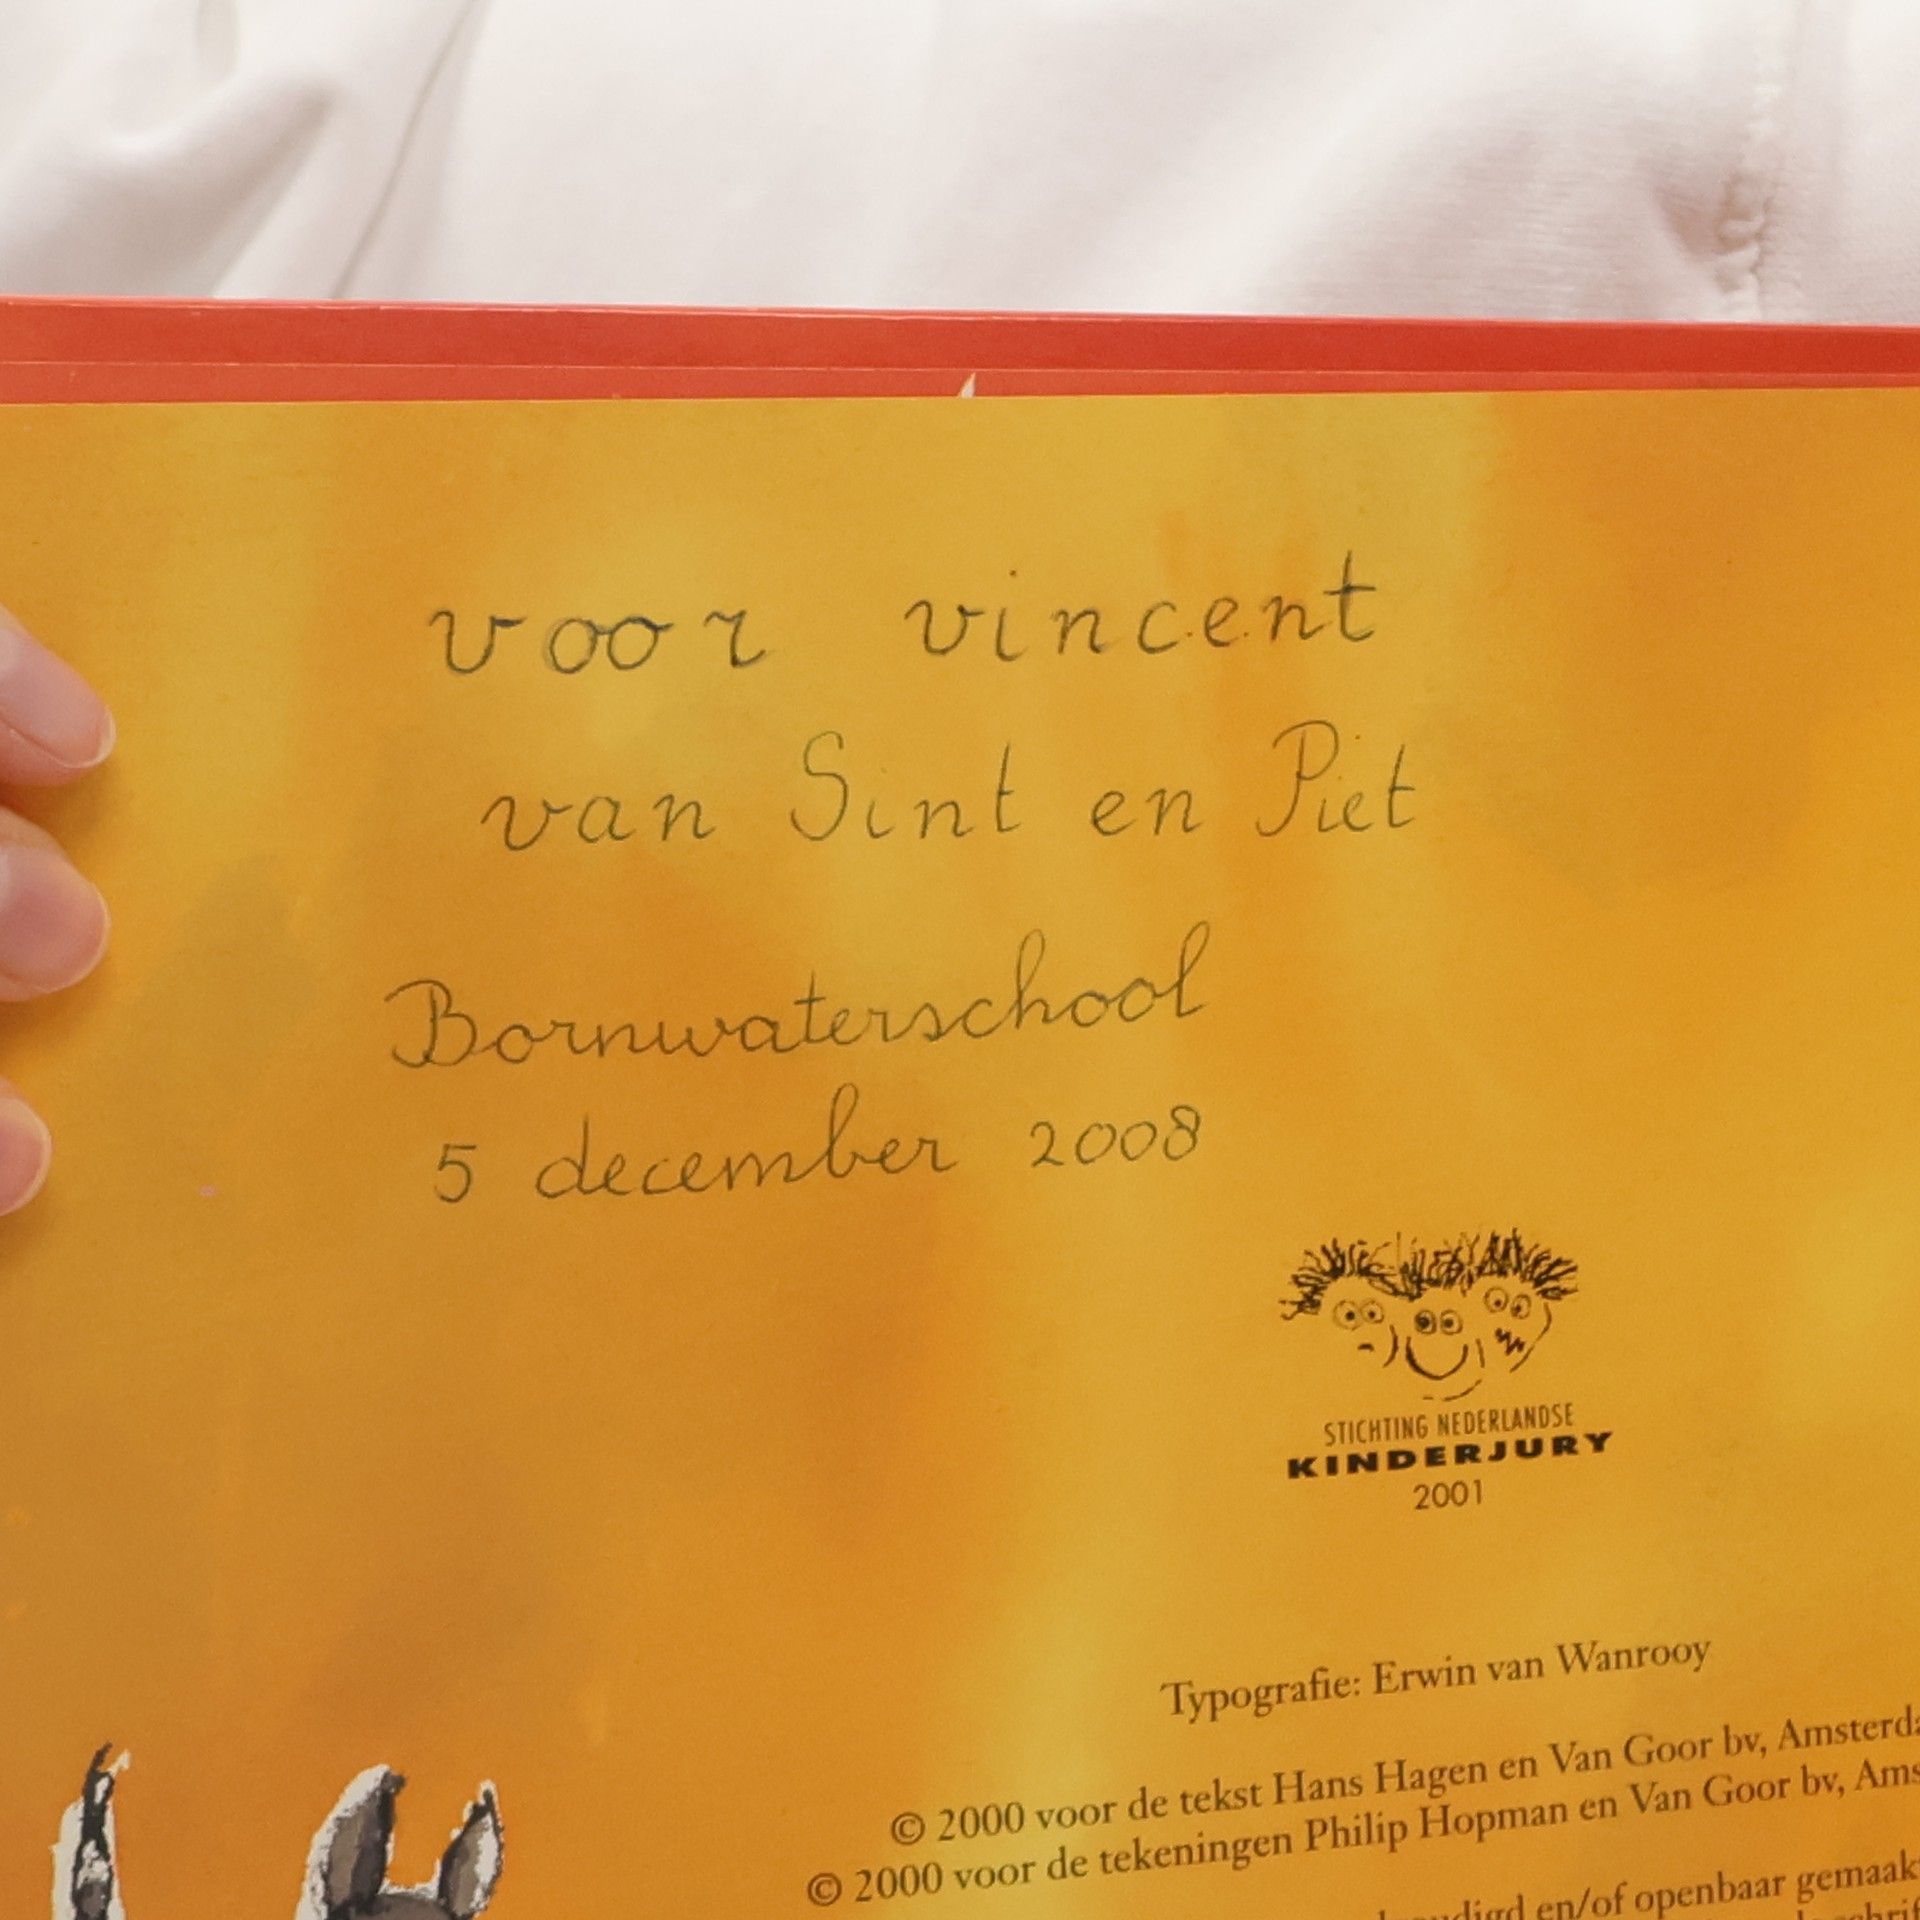 voor vincent
van Sint en Piet
Bornwaterschool
5 december 2008
STICHTING NEDERLANDSE
KINDERJURY
2001
Typografie: Erwin van Wanrooy
© 2000 voor de tekst Hans Hagen en Van Goor bv,
© 2000 voor de tekeningen Philip Hopman en Van Goor bv,
en/of openbaar